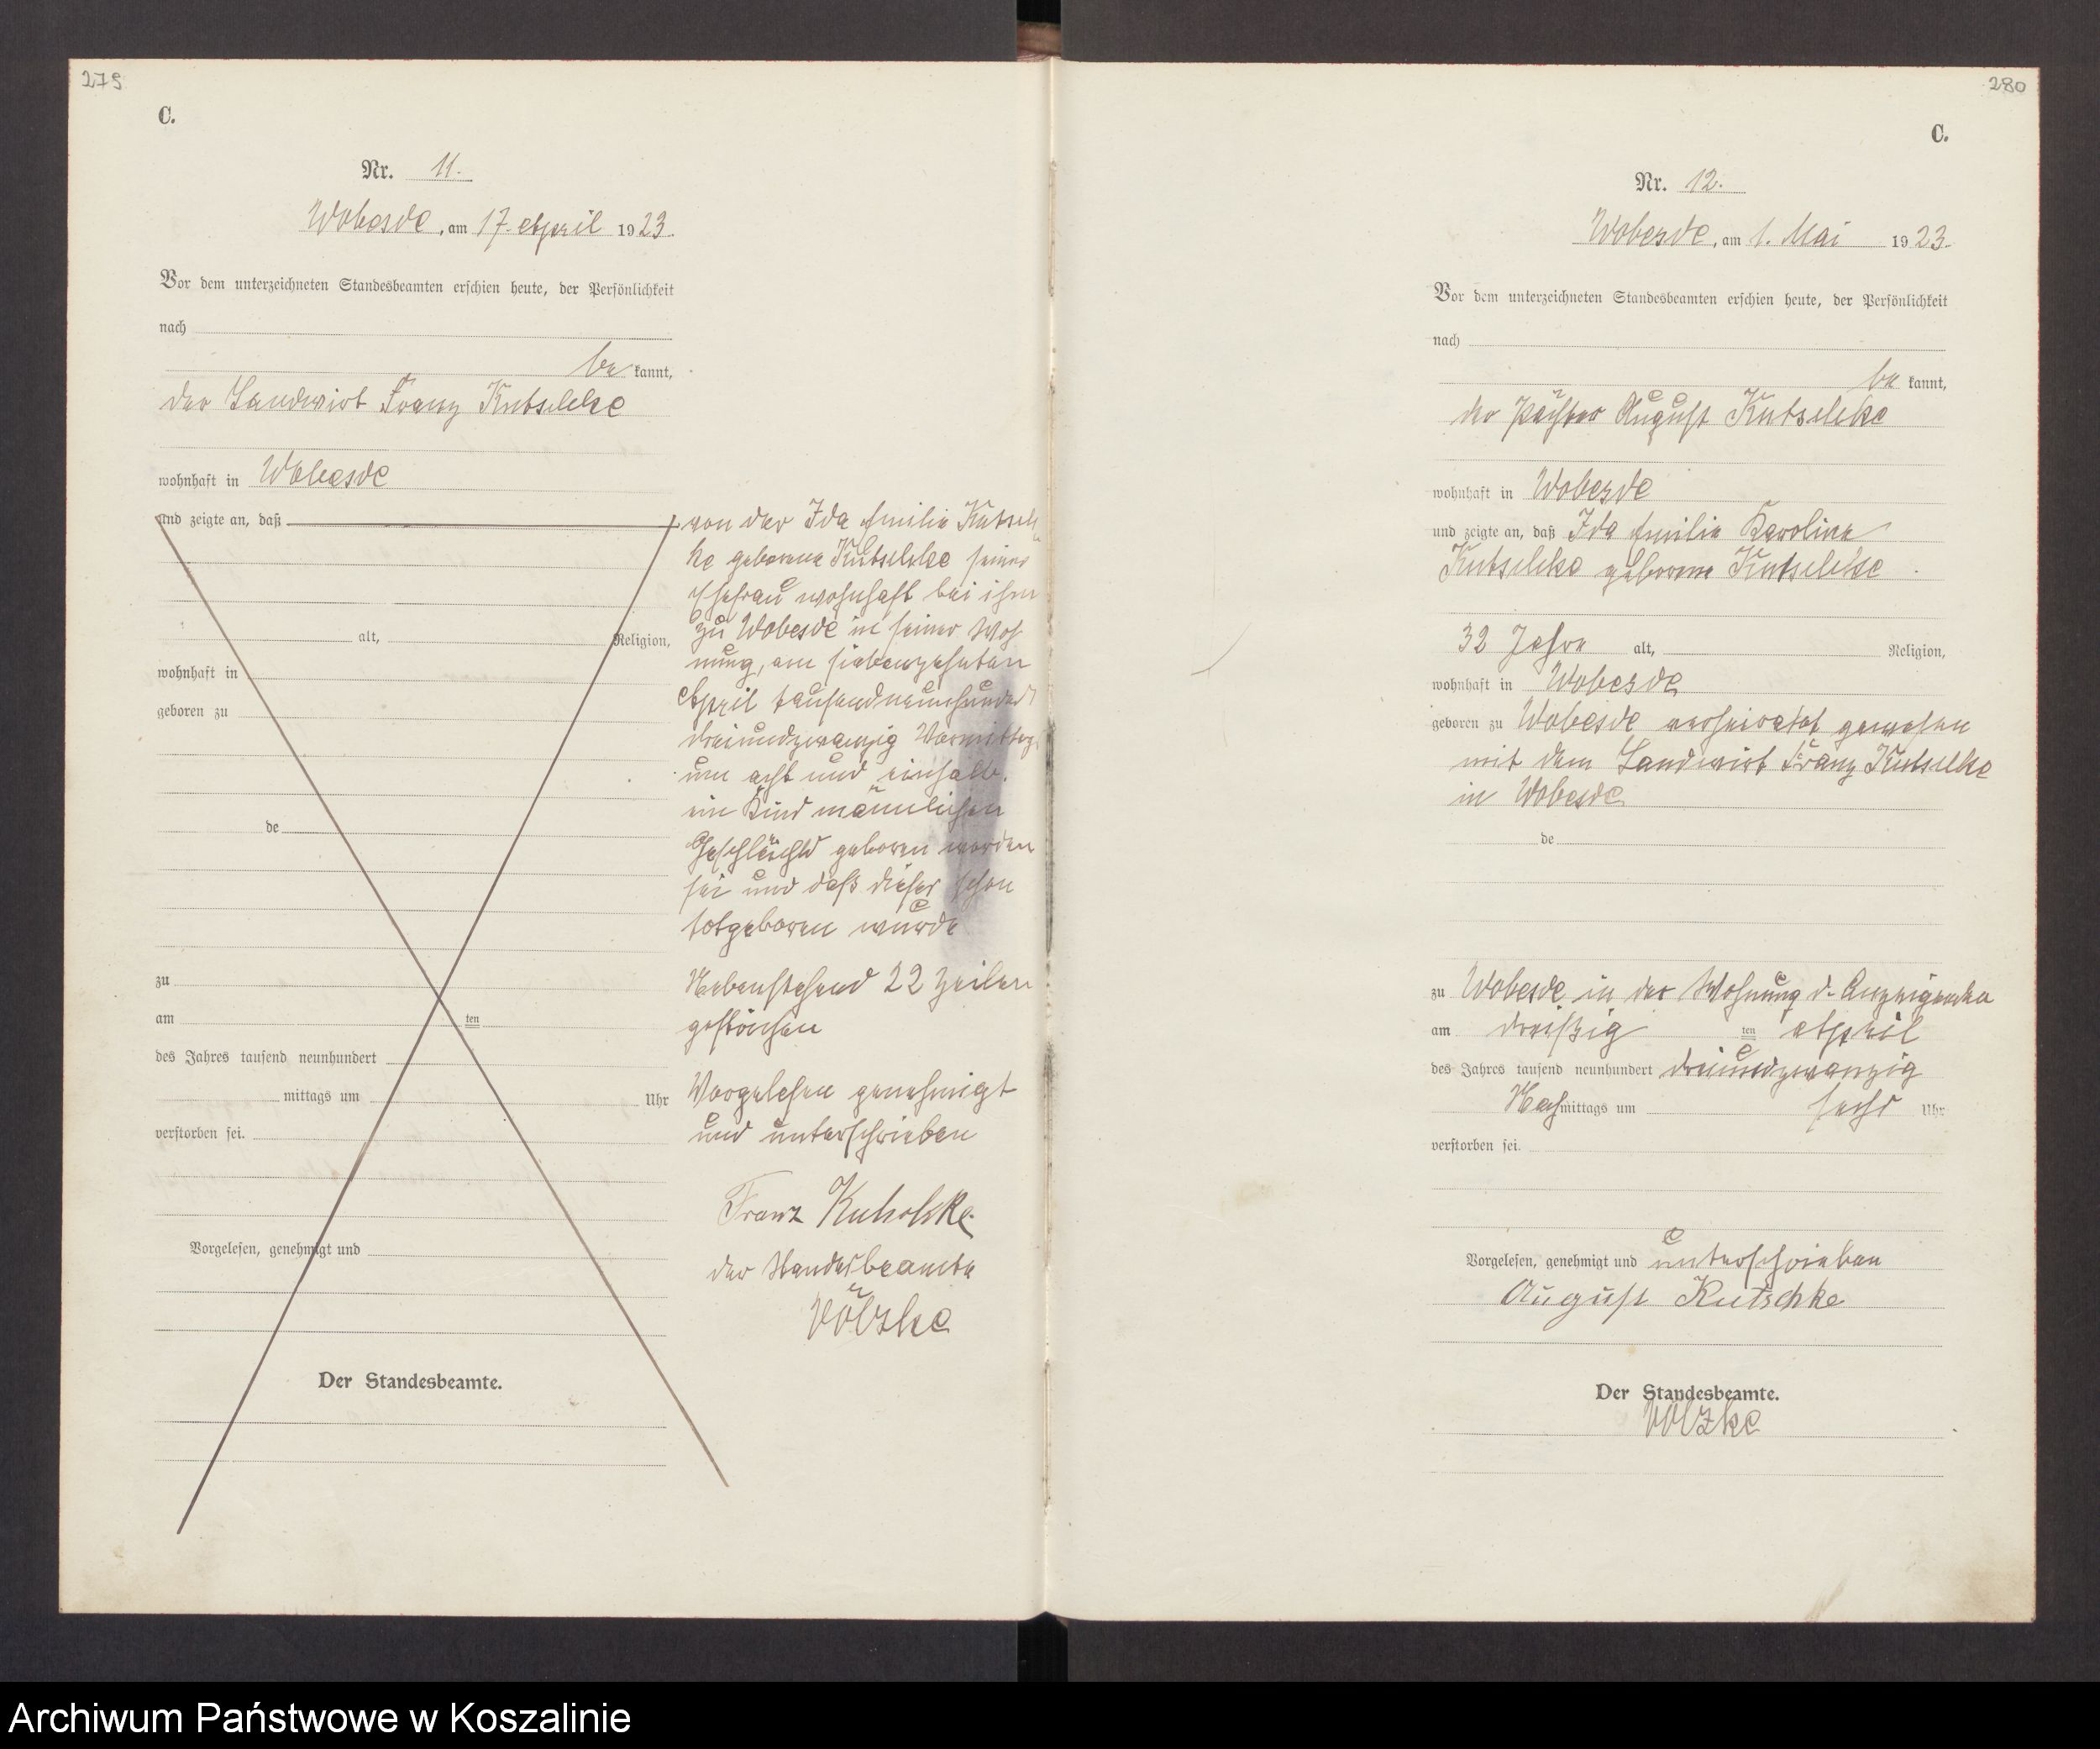 279
C.
Nr. 11.
Wobesde, am 17. April 1923.
Vor dem unterzeichneten Standesbeamten erschien heute, der Persönlichkeit
nach
be kannt,
der Landwirt Franz Kutschke
wohnhaft in Wobesde
und zeigte an, daß
alt, Religion,
wohnhaft in
geboren zu
de
zu
am ten
des Jahres tausend neunhundert
mittags um Uhr
verstorben sei.
Vorgelesen, genehmigt und
Der Standesbeamte.
von der Ida Emilie Kutsch
ke geborene Kutschke seiner
Ehefrau wohnhaft bei ihm
zu Wobesde in seiner Woh
nung, am siebenzehnten
April tausendneunhundert
dreiundzwanzig Vormittags
um acht und einhalb.
ein Kind männlichen
Geschlechts geboren worden
sei und daß dieses schon
totgeboren wurde
Nebenstehend 22 Zeilen
gestrichen
Vorgelesen genehmigt
und unterschrieben
Franz Kutschke.
der Standesbeamte
Völzke
280
C.
Nr. 12.
Wobesde, am 1. Mai 1923.
Vor dem unterzeichneten Standesbeamten erschien heute, der Persönlichkeit
nach
be kannt,
der Pächter August Kutschke
wohnhaft in Wobesde
und zeigte an, daß Ida Emilie Karoline
Kutschke geborene Kutschke
32 Jahre alt, Religion,
wohnhaft in Wobesde
geboren zu Wobesde verheiratet gewesen
mit dem Landwirt Franz Kutschke
in Wobesde
de
zu Wobesde in der Wohnung d. Anzeigenden
am dreißig ten April
des Jahres tausend neunhundert dreiundzwanzig
Nachmittags um sechs Uhr
verstorben sei.
Vorgelesen, genehmigt und unterschrieben
August Kutschke
Der Standesbeamte.
Völzke
Archiwum Państwowe w Koszalinie